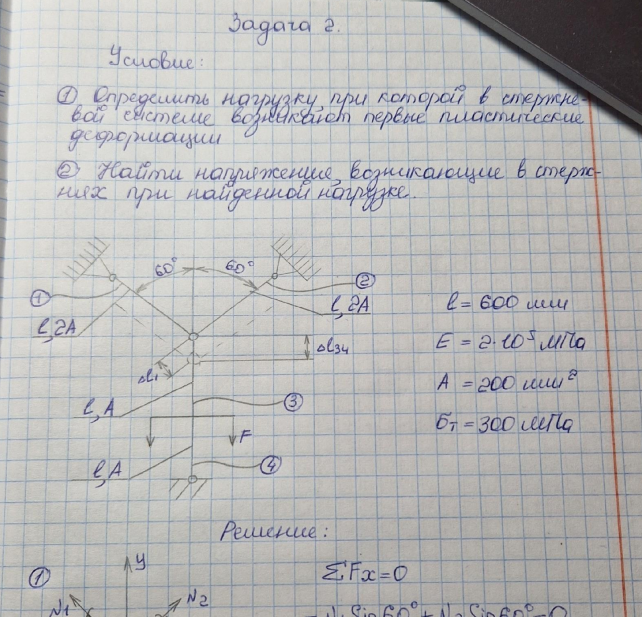 Задача 2.
Условие:
① Определить нагрузку, при которой в стержне-
вой системе возникают первые пластические
деформации
② Найти напряжения, возникающие в стерж-
нях при найденной нагрузке.
60° 60°
① ②
l, 2A l, 2A
l = 600 мм
Δl₃₄
E = 2·10⁵ МПа
Δl₁
A = 200 мм²
l, A ③
F
σт = 300 МПа
l, A ④
Решение:
① y
ΣFx = 0
N₁ N₂
- N₁ Sin60° + N₂ Sin60° = 0